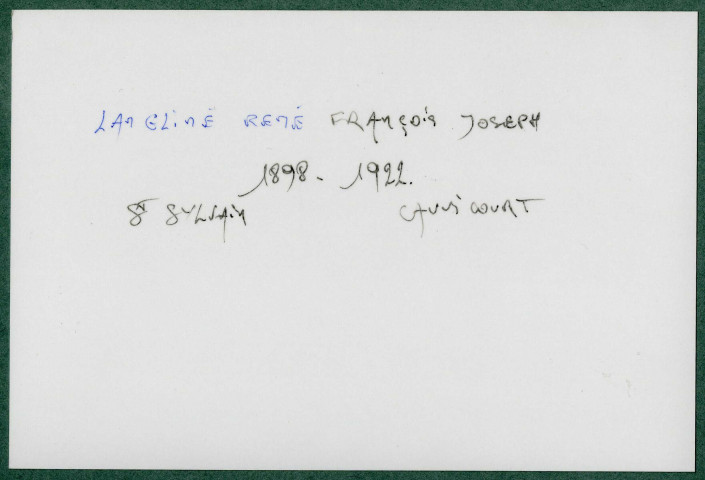 LAMELINE RENÉ FRANÇOIS JOSEPH
1898 - 1922.
St SYLVAIN CAUVICOURT